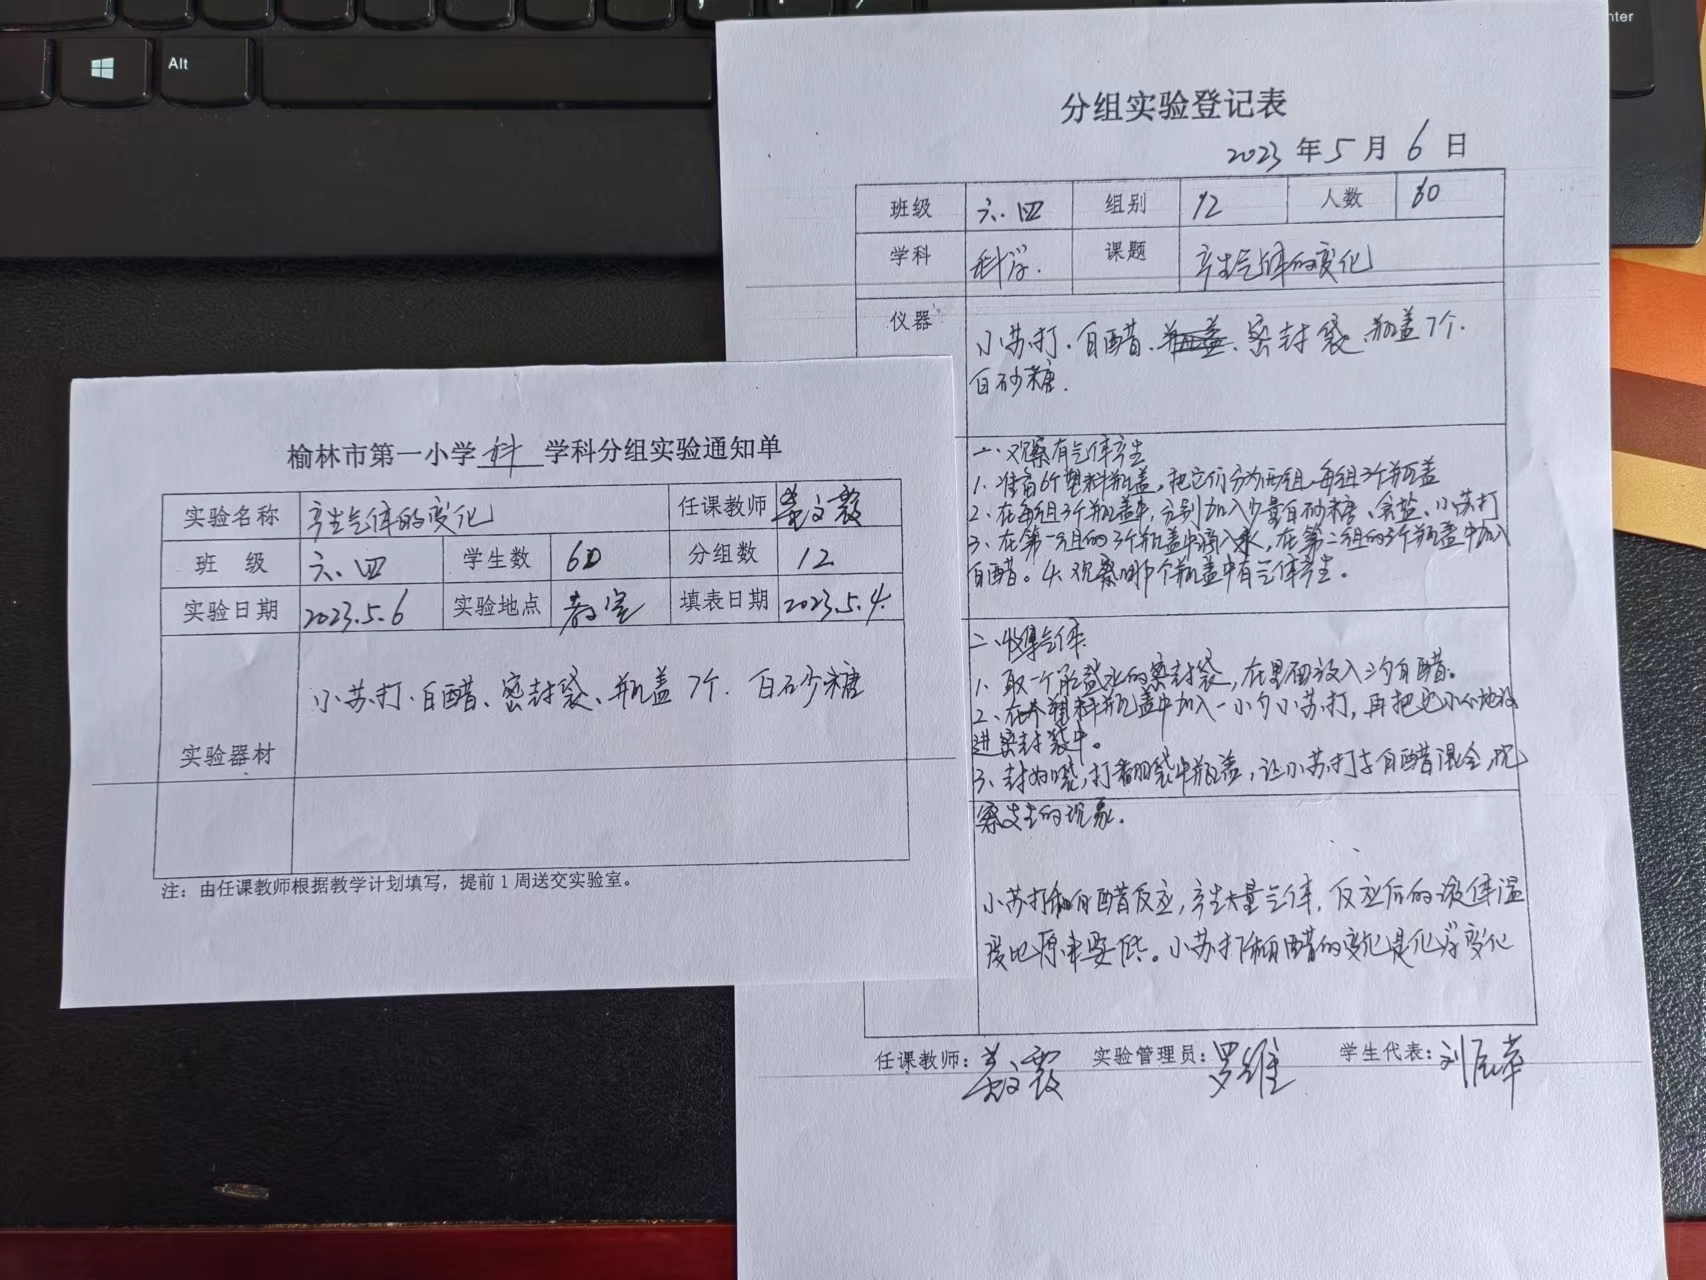 Alt
Enter
榆林市第一小学 科 学科分组实验通知单
实验名称 产生气体的变化 任课教师 文霞
班 级 六.四 学生数 60 分组数 12
实验日期 2023.5.6 实验地点 教室 填表日期 2023.5.4.
实验器材 小苏打、白醋、密封袋、瓶盖7个. 白砂糖
注：由任课教师根据教学计划填写，提前1周送交实验室。
分组实验登记表
2023 年 5 月 6 日
班级 六.四 组别 12 人数 60
学科 科学. 课题 产生气体的变化
仪器 小苏打、白醋、密封袋、瓶盖7个.
白砂糖.
一、观察有气体产生
1、准备6个塑料瓶盖，把它们分为两组，每组3个瓶盖
2、在每组3个瓶盖中，分别加入少量白砂糖、食盐、小苏打
3、在第一组的3个瓶盖中滴入水，在第二组的3个瓶盖中加入
白醋。4、观察哪个瓶盖中有气体产生。
二、收集气体
1、取一个能盛水的密封袋，在里面放入三勺白醋。
2、在个塑料瓶盖中加入一小勺小苏打，再把它小心地放
进密封袋中。
3、封好袋，打翻袋中瓶盖，让小苏打与白醋混合，观
察发生的现象。
小苏打和白醋反应，产生大量气体，反应后的液体温
度比原来要低。小苏打和白醋的变化是化学变化
任课教师： 文霞 实验管理员：罗维 学生代表：刘